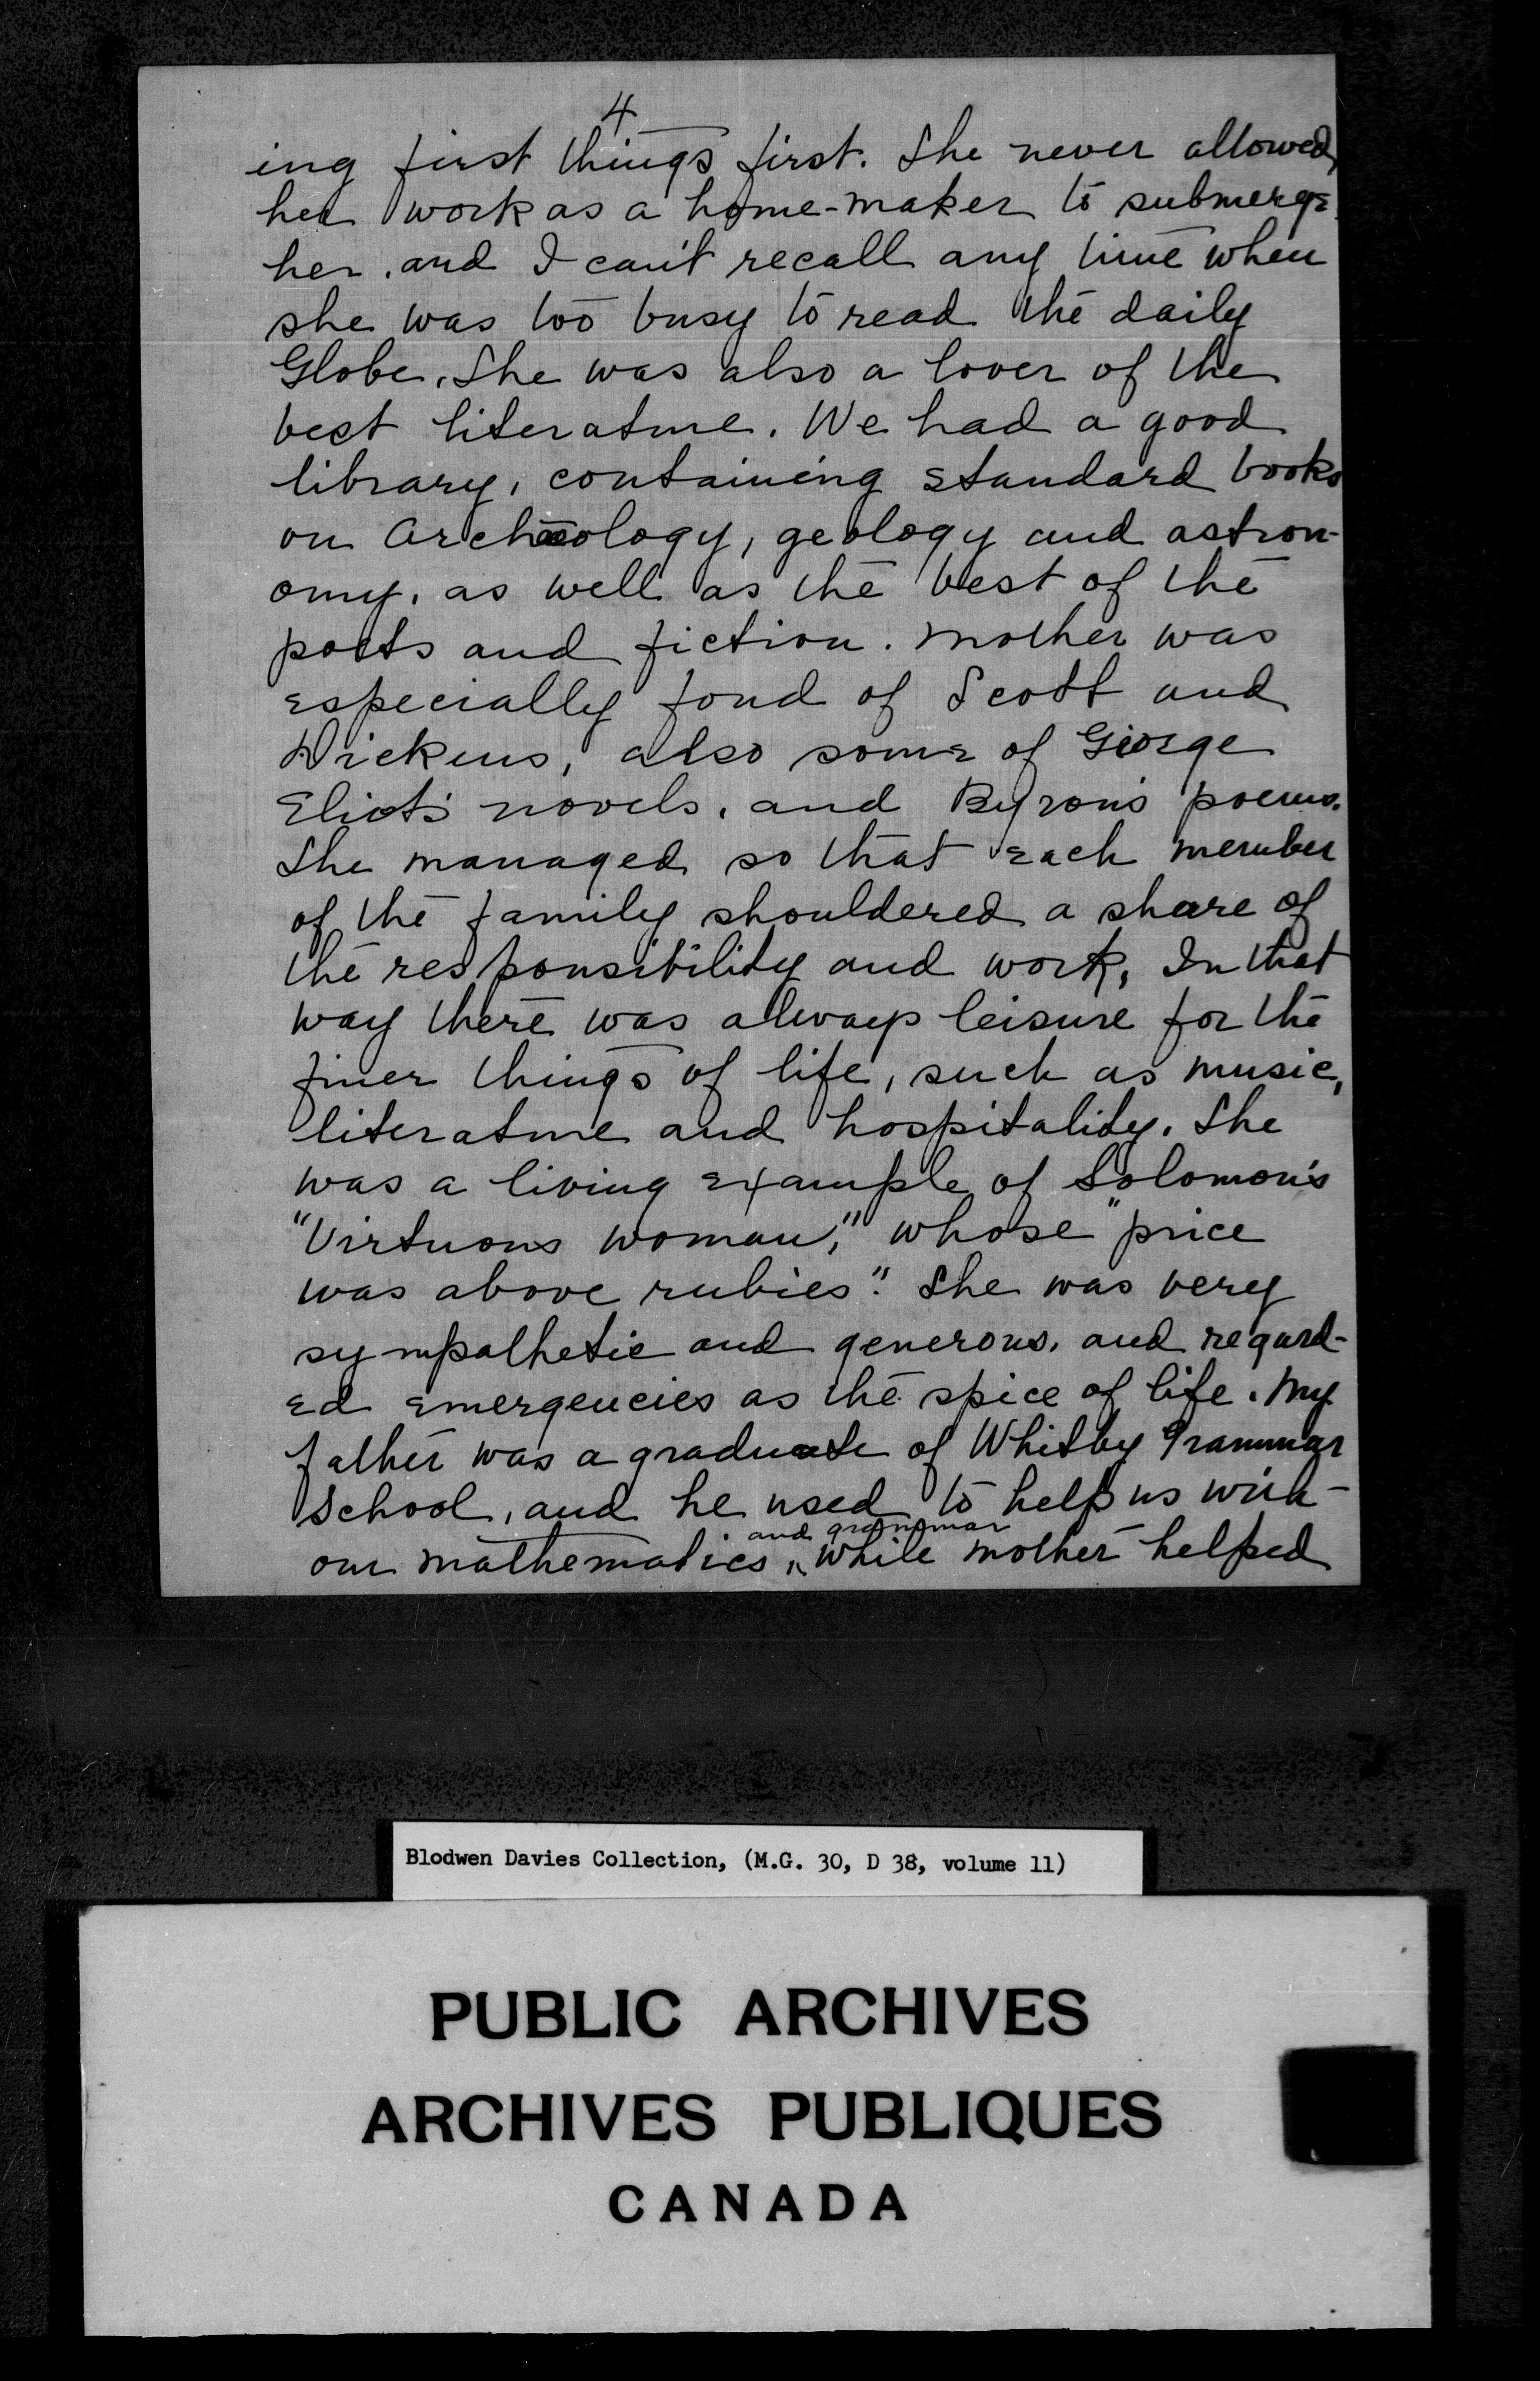 4
ing first things first. She never allowed
her work as a home-maker to submerge
her, and I can't recall any time when
she was too busy to read the daily
Globe. She was also a lover of the
best literature. We had a good
library, containing standard books
on Archæology, geology and astron-
omy, as well as the best of the
poets and fiction. Mother was
especially fond of Scott and
Dickens, also some of George
Eliot's novels, and Byron's poems.
She managed so that each member
of the family shouldered a share of
the responsibility and work, In that
way there was always leisure for the
finer things of life, such as music,
literature and hospitality. She
was a living example of Solomon's
"Virtuous woman," whose "price
was above rubies". She was very
sympathetic and generous, and regard-
ed emergencies as the spice of life. My
father was a graduate of Whitby Grammar
School, and he used to help us with
and grammar
our mathematics, while mother helped
Blodwen Davies Collection, (M.G. 30, D 38, volume 11)
PUBLIC ARCHIVES
ARCHIVES PUBLIQUES
CANADA